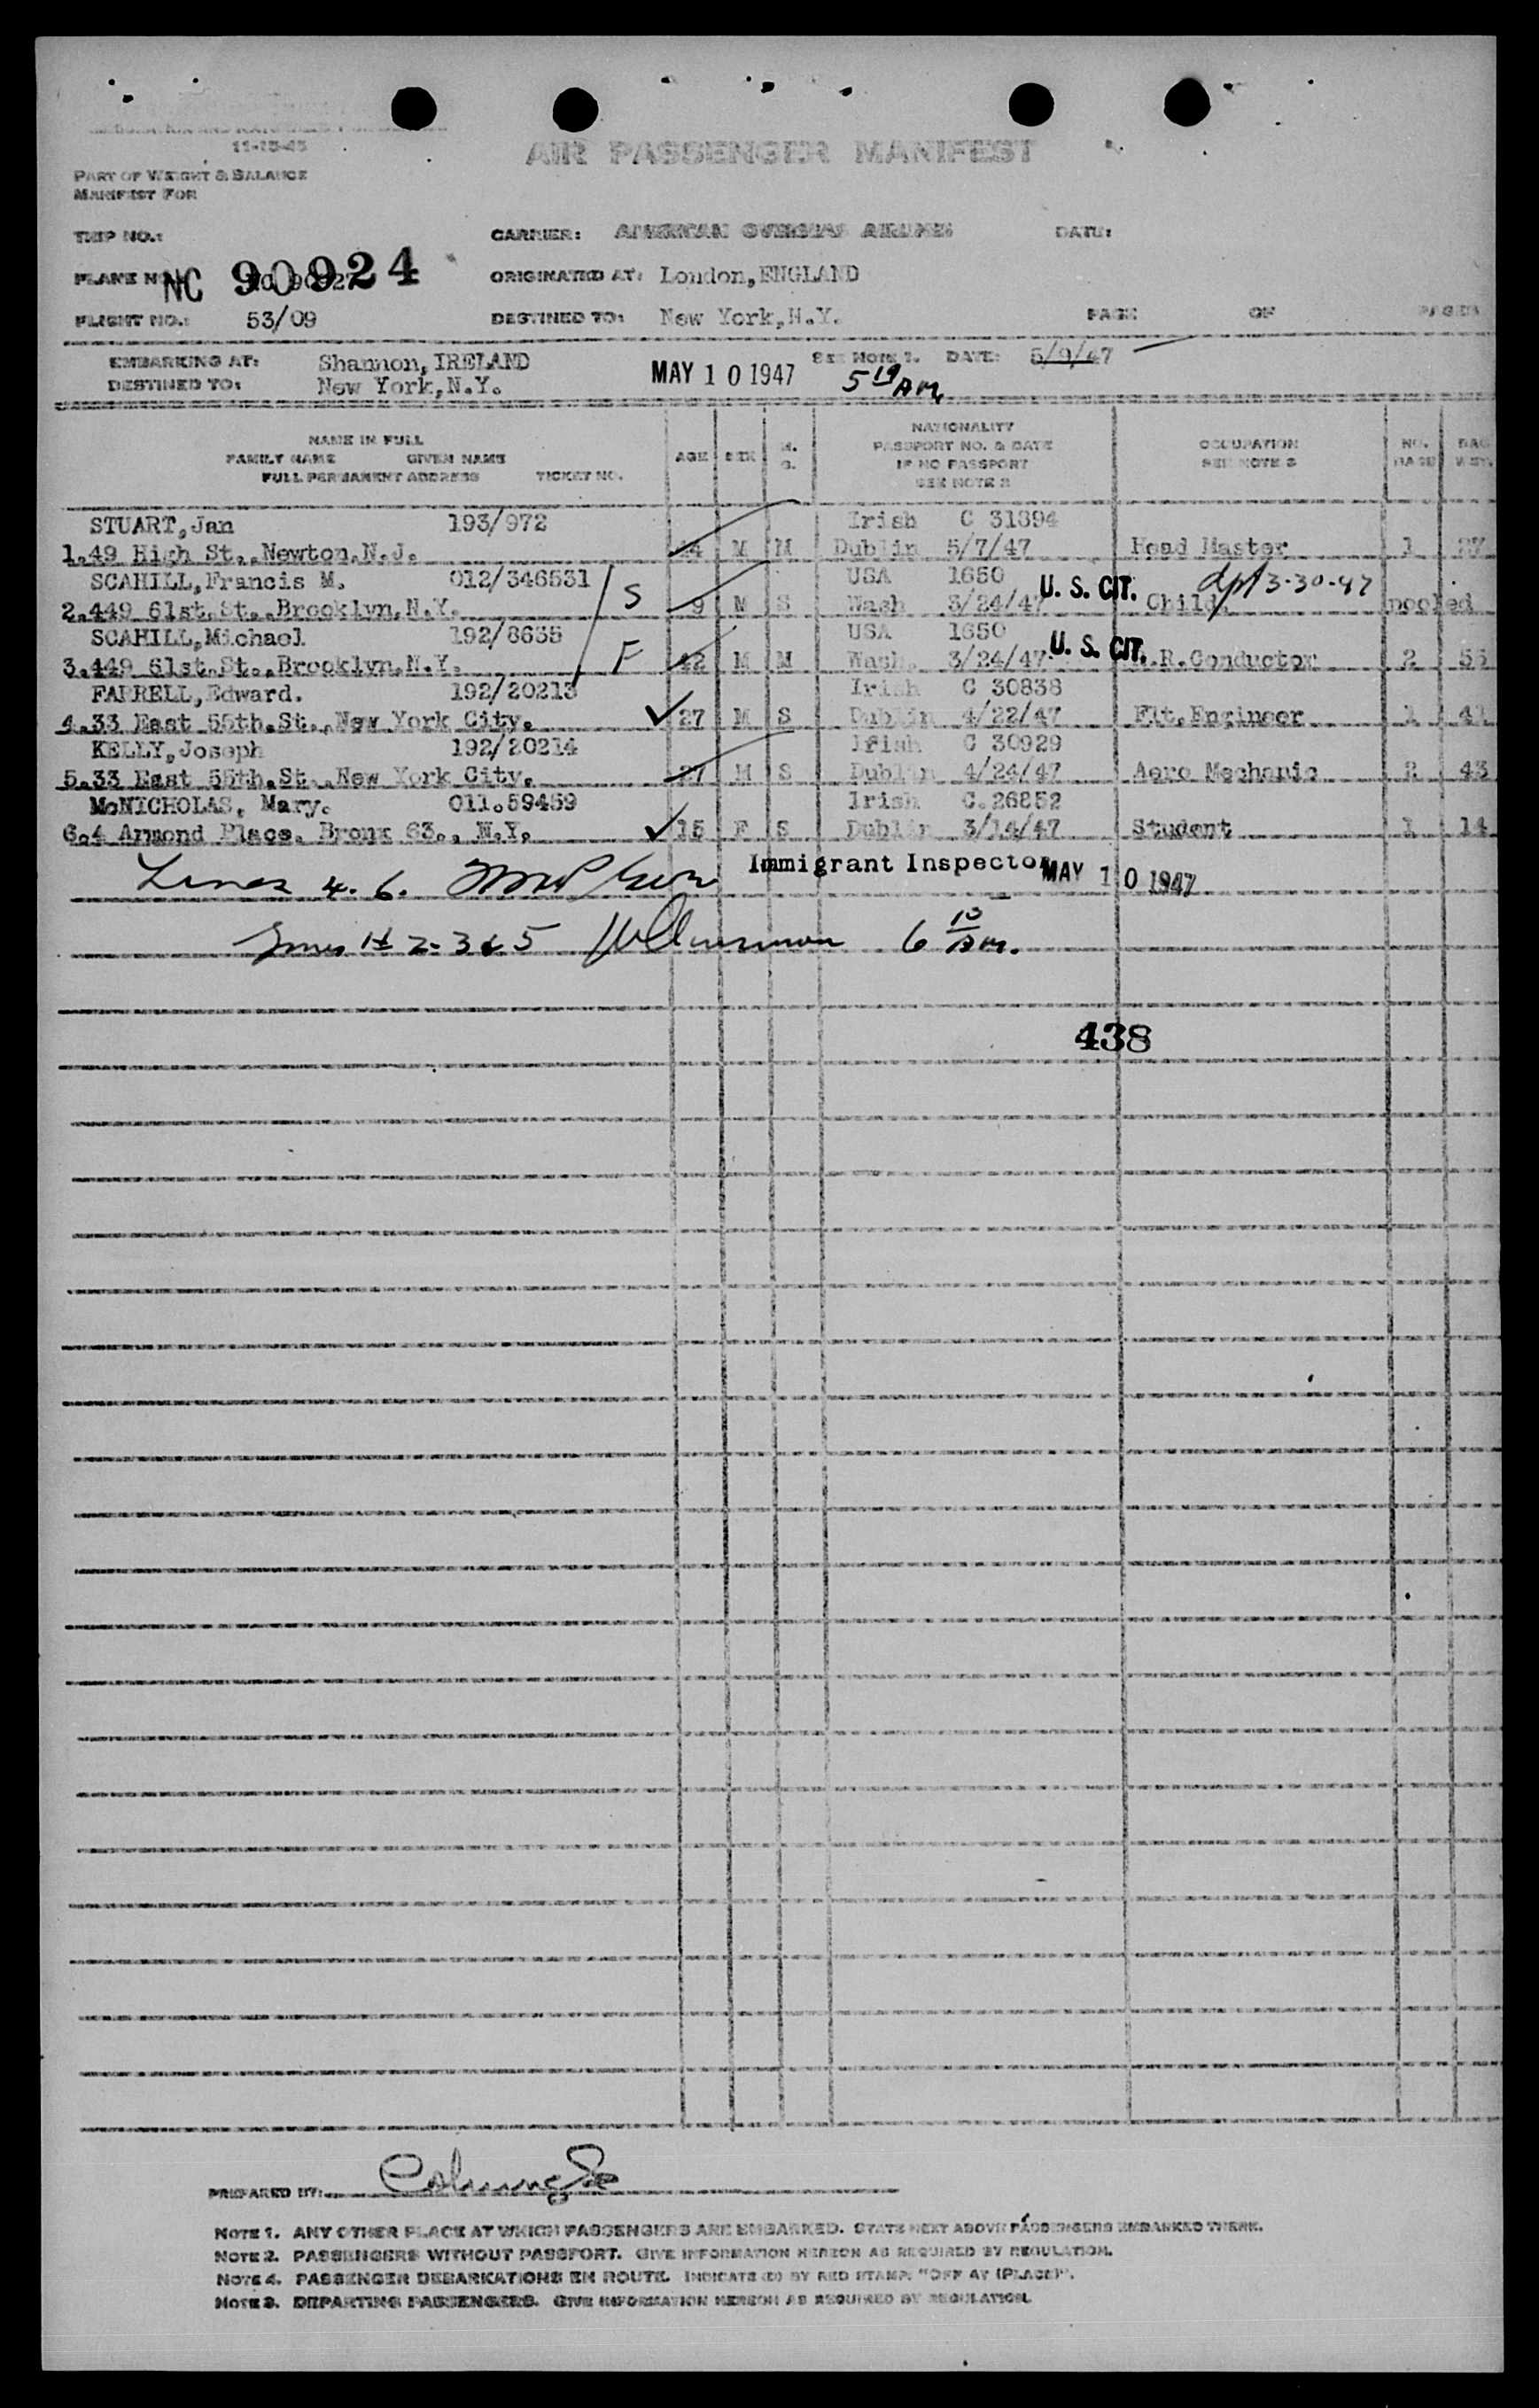 11-15-45
AIR PASSENGER MANIFEST
PART OF WEIGHT & BALANCE
MANIFEST FOR
TRIP NO.:
CARRIER: AMERICAN OVERSEAS AIRLINES DATE:
PLANE NO. NC 90924 ORIGINATED AT: London, ENGLAND
FLIGHT NO.: 53/09 DESTINED TO: New York, N.Y. PAGE OF PAGES
EMBARKING AT: Shannon, IRELAND MAY 10 1947 SEE NOTE 1. DATE: 5/9/47
DESTINED TO: New York, N.Y. 5 19 AM
NAME IN FULL
FAMILY NAME GIVEN NAME
FULL PERMANENT ADDRESS TICKET NO.
AGE SEX M. S.
NATIONALITY
PASSPORT NO. & DATE
IF NO PASSPORT
SEE NOTE 2
OCCUPATION
SEE NOTE 3
NO. BAGS
BAG WGT.
STUART, Jan 193/972 Irish C 31894
1. 49 High St., Newton, N.J. 44 M M Dublin 5/7/47 Head Master 1 27
SCAHILL, Francis M. 012/346531 S USA 1650 U. S. CIT. dpt 3-30-47
2. 449 61st. St., Brooklyn, N.Y. 9 M S Wash 3/24/47 Child. pooled
SCAHILL, Michael 192/8635 USA 1650 U. S. CIT.
3. 449 61st. St., Brooklyn, N.Y. F 42 M M Wash. 3/24/47 R.R. Conductor 2 55
FARRELL, Edward. 192/20213 Irish C 30838
4. 33 East 55th. St., New York City. 27 M S Dublin 4/22/47 Flt. Engineer 1 41
KELLY, Joseph 192/20214 Irish C 30929
5. 33 East 55th. St., New York City. 27 M S Dublin 4/24/47 Aero Mechanic 2 43
McNICHOLAS, Mary. 011.59459 Irish C.26852
6. 4 Armond Place. Bronx 63., N.Y. 15 F S Dublin 3/14/47 Student 1 14
Lines 4. 6. Immigrant Inspector MAY 10 1947
Lines 1st 2-3 & 5 6 15 AM.
438
PREPARED BY:
NOTE 1. ANY OTHER PLACE AT WHICH PASSENGERS ARE EMBARKED. STATE NEXT ABOVE PASSENGERS EMBARKED THERE.
NOTE 2. PASSENGERS WITHOUT PASSPORT. GIVE INFORMATION HEREON AS REQUIRED BY REGULATION.
NOTE 4. PASSENGER DEBARKATIONS EN ROUTE. INDICATE (D) BY RED STAMP: "OFF AT (PLACE)".
NOTE 3. DEPARTING PASSENGERS. GIVE INFORMATION HEREON AS REQUIRED BY REGULATION.